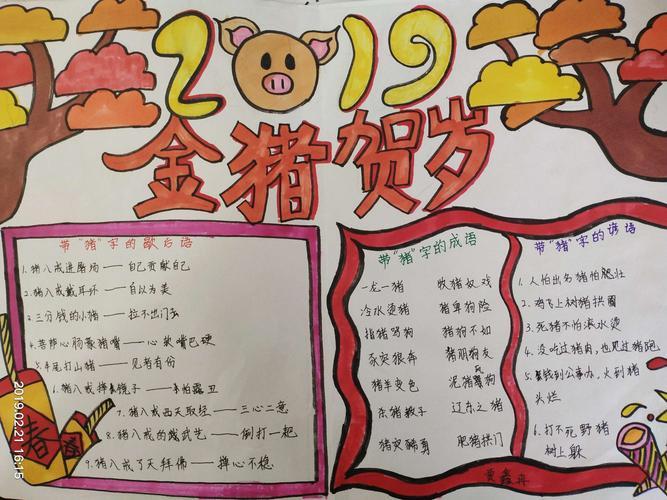 2019
金猪贺岁
带“猪”字的歇后语
1. 猪八戒进屠场——自己贡献自己
2. 猪八戒戴耳环——自以为美
3. 三分钱的小猪——拉不出门去
4. 菩萨心肠蒙猪嘴——心软嘴巴硬
5. 半尾打山猪——见者有份
6. 猪八戒摔镜子——怕露丑
7. 猪八戒西天取经——三心二意
8. 猪八戒的武艺——倒打一耙
9. 猪八戒了天拜佛——掸心不稳
带“猪”字的成语
一龙一猪 牧猪奴戏
泠水烫猪 猪卑狗险
指猪骂狗 猪狗不如
豕突狼奔 猪朋狗友
猪羊变色 泥猪瓦狗
杀猪教子 辽东之猪
猪突豨勇 肥猪拱门
带“猪”字的谚语
1. 人怕出名猪怕肥壮
2. 鸡飞上树猪拱圈
3. 死猪不怕滚水烫
4. 没吃过猪肉,也见过猪跑
5. 钱到公事办,火到猪
头烂
6. 打不死野猪
树上躲
春
2019.02.21 16:15